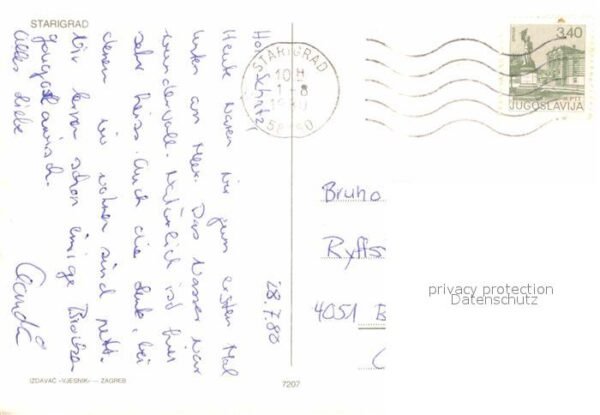 STARIGRAD
28.7.80
Hoi Schatz!
Heute waren wir zum ersten Mal
unten am Meer. Das Wasser war
wundervoll. Natürlich ist hier
sehr heiss. Auch die Leute, bei
denen wir wohnen sind nett.
Wir lernen schon einige Brocken
jugoslawisch.
Alles Liebe
Claudia
IZDAVAČ «VJESNIK» — ZAGREB
7207
STARIGRAD
10 H
1 -8
1980
3.40
JUGOSLAVIJA
Bruno
Ryffs
4051 B
privacy protection
Datenschutz